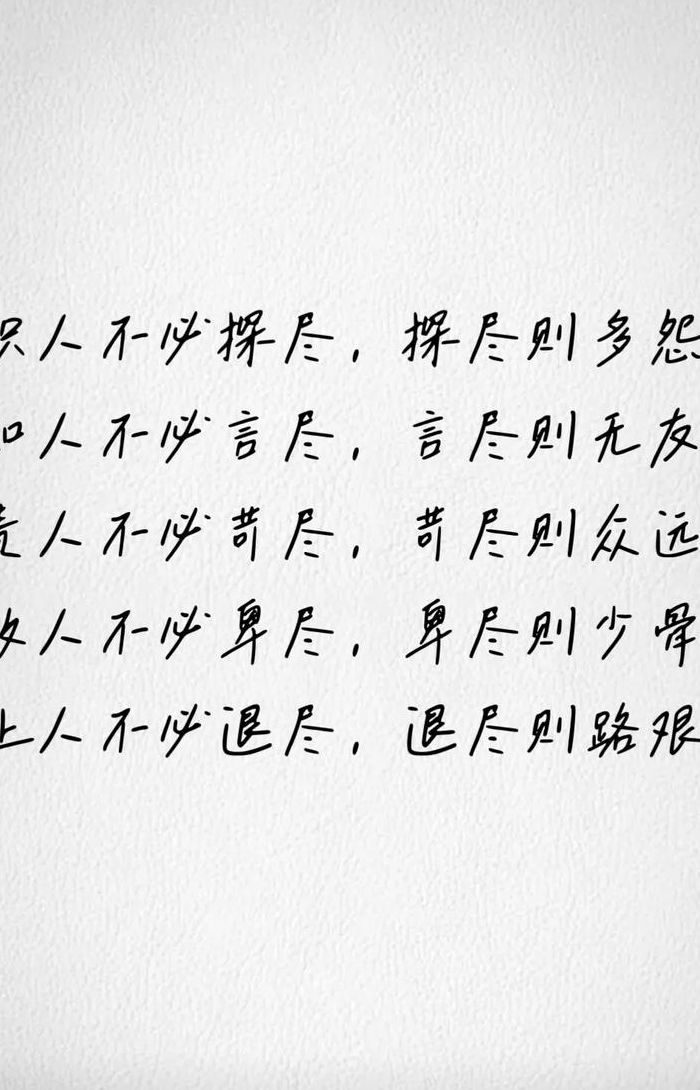 人不必探尽，探尽则多怨
人不必言尽，言尽则无友
人不必苛尽，苛尽则众远
人不必卑尽，卑尽则少骨
人不必退尽，退尽则路艰